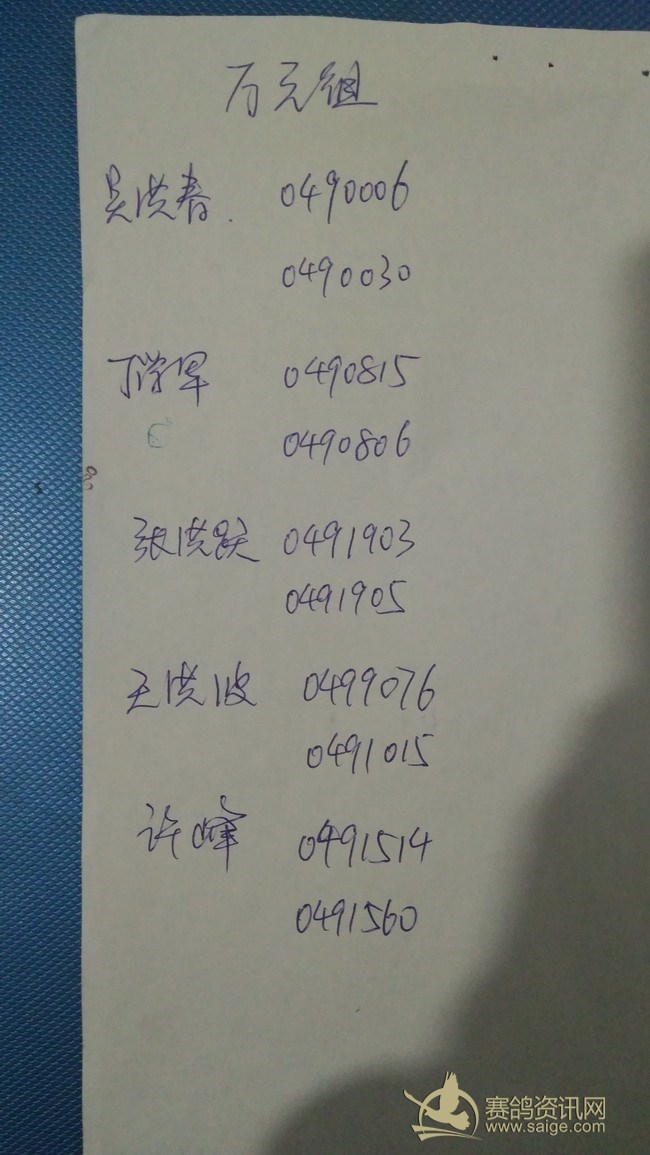 万元组
吴洪春. 0490006
0490030
丁学军 0490815
0490806
张洪跃 0491903
0491905
王洪波 0499076
0491015
许峰 0491514
0491560
赛鸽资讯网
www.saige.com